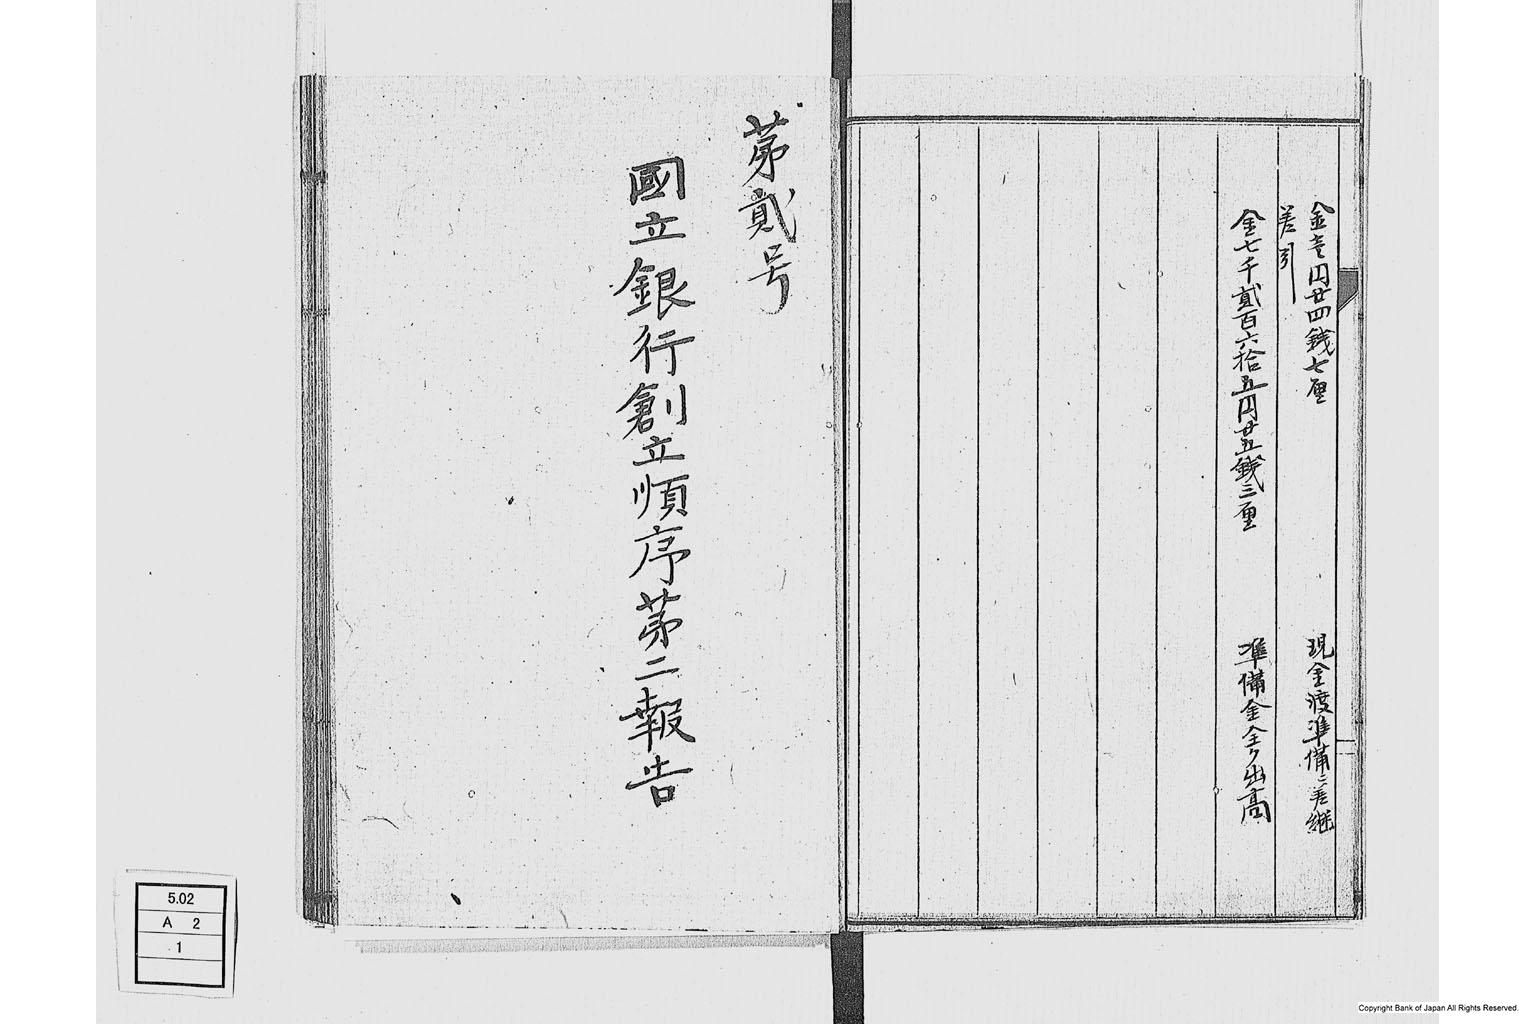 金壱円廿四銭七厘 現金渡準備ニ差継
差引
金七千貳百六拾五円廿五銭三厘 準備金全ク出高
第貳号
國立銀行創立順序第二報告
5.02
A 2
1
Copyright Bank of Japan All Rights Reserved.